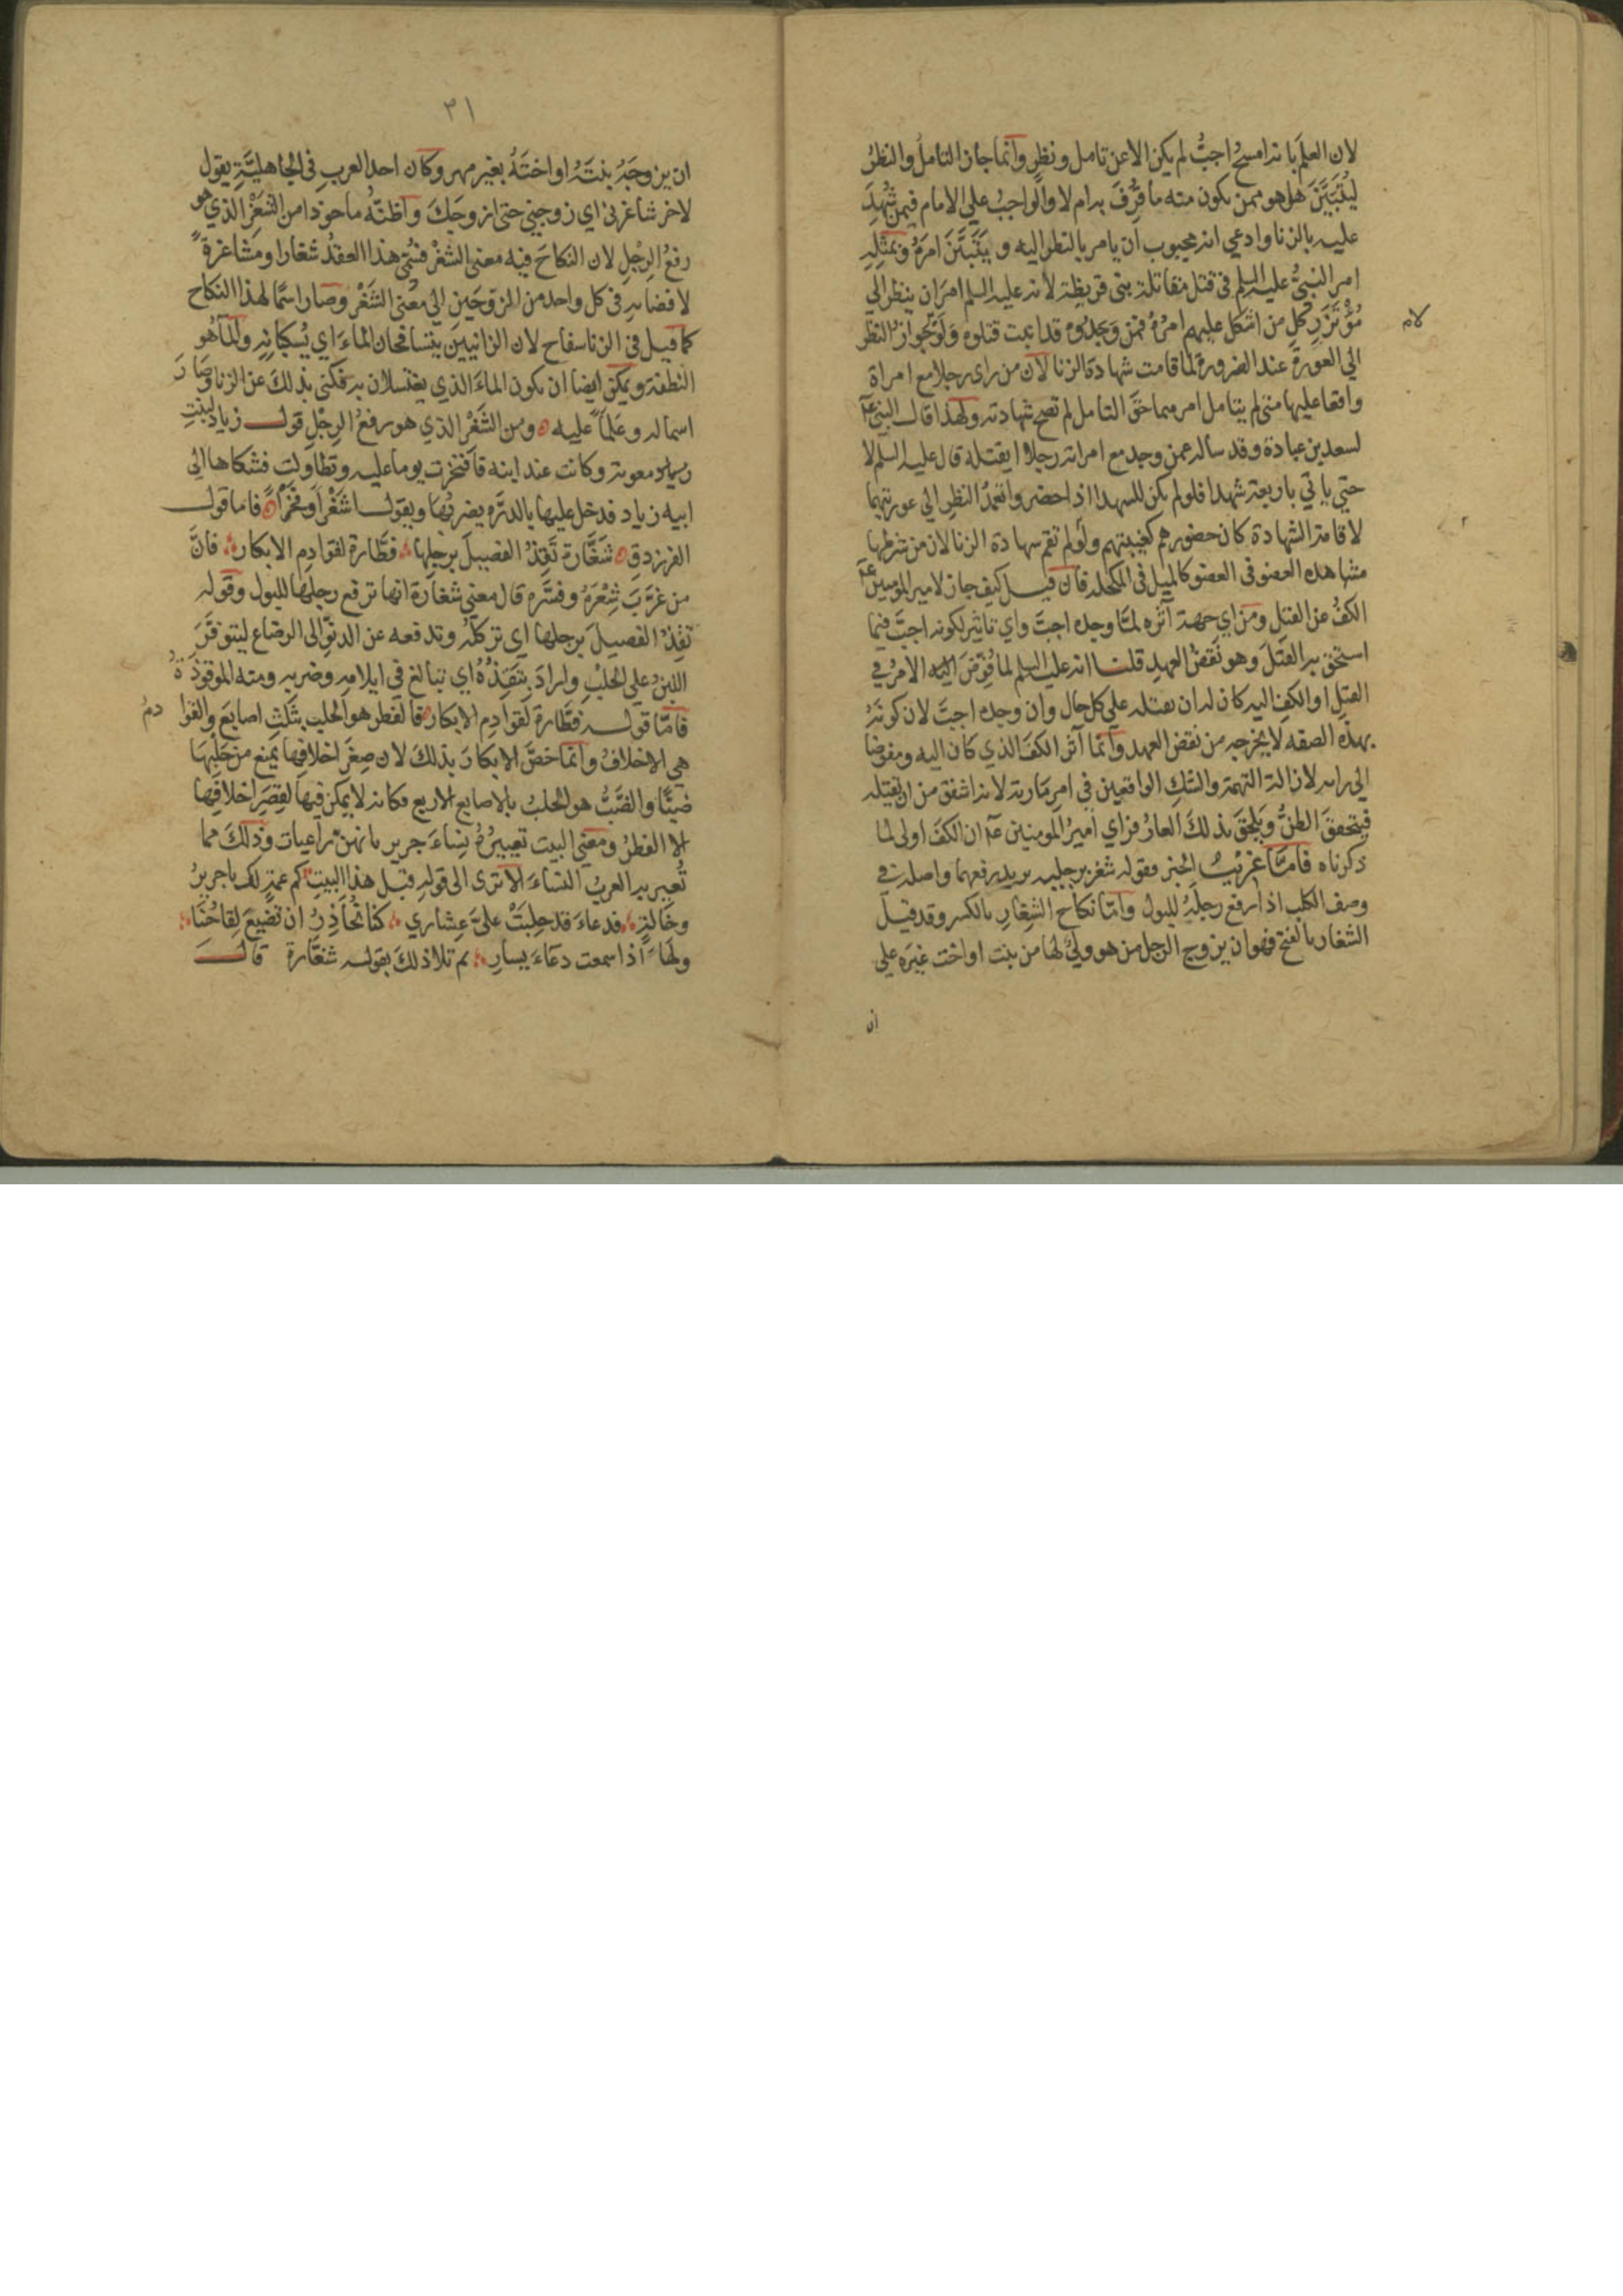 لان العلم بانه امسح اجبّ لم يكن الا عن تامل ونظر وانما جاز التامل والنظر
ليتبيّن هل هو ممن يكون منه ما قُرِفَ به ام لا والواجب على الامام فيمن شُهِدَ
عليه بالزنا وادعي انه مجبوب ان يامر بالنظر اليه ويتبيّن امره وبمثله
امر النبي عليه السلم في قتل مقاتلة بني قريظة لانه عليه السلم امر ان ينظر الي
مؤتزر كل من اشكل عليهم امره فمن وجدوه قد انبت قتلوه ولو لا جواز النظر
لام
الي العورة عند الضرورة لما قامت شهادة الزنا لان من راى رجلا مع امراة
واقعا عليها متى لم يتامل امرهما حق التامل لم تصح شهادته ولهذا قال النبي عم
لسعد بن عبادة وقد ساله عمن وجد مع امراته رجلا ايقتله قال عليه السلم لا
حتي ياتي باربعة شهدا فلو لم يكن للشهدا اذا حضروا تعمد النظر الي عورتيهما
لاقامة الشهادة كان حضورهم كغيبتهم ولو لم تقم شهادة الزنا لان من شرطها
مشاهدة العضو في العضو كالميل في المكحلة فان قيل كيف جاز لامير المومنين عم
الكف عن القتل ومن اي جهة آثره لمّا وجده اجبّ واي تاثير لكونه اجبّ فيما
استحق به القتل وهو نقض العهد قلنا انه عليه السلم لما فوّض اليه الامر في
القتل او الكف اليه كان له ان يقتله على كل حال وان وجده اجبّ لان كونه
بهذه الصفه لا يخرجه من نقض العهد وانما آثر الكف الذي كان اليه ومفوضا
الي رايه لازالة التهمة والشك الواقعين في امر مارية لانه اشفق من ان يقتله
فيتحقق الظن ويلحق بذلك العار فراي امير المومنين عم ان الكف اولى لما
ذكرناه فامّا غريب الخبر فقوله شغر برجليه يريد رفعهما واصله في
وصف الكلب اذا رفع رجله للبول وامّا نكاح الشِغارِ بالكسر وقد قيل
الشغار بالفتح فهو ان يزوج الرجل من هو وليّ لها من بنت او اخت غيرَه على
ان
٣١
ان يزوجه بنته او اخته بغير مهر وكان احد العرب في الجاهليّة يقول
لاخر شاغرني اي زوجني حتى ازوجك واظنّه ماخوذا من الشغر الذي هو
رفع الرجل لان النكاح فيه معنى الشغر فسُمّي هذا العقد شغارا ومشاغرة
لافضائه في كل واحد من المزوجين الي معنى الشغر وصار اسمًا لهذا النكاح
كما قيل في الزنا سفاح لان الزانيين يتسافحان الماء اي يسكبانه والما هو
النطفة ويمكن ايضا ان يكون الماء الذي يغتسلان به فكني بذلك عن الزنا وصار
اسما له وعلما عليه ومن الشغر الذي هو رفع الرجل قول زياد لبنت
معوية وكانت عند ابنه فافتخرت يوما عليه وتطاولت فشكاها الي
ابيه زياد فدخل عليها بالدرّه يضربها ويقول اشغرًا وفخرًا فاما قول
الفرزدق شغّارة تقذ الفصيل برجلها فطّارة لقوادم الابكار فانّ
من غرّب شعره وفسّره قال معنى شغارة انها ترفع رجلها للبول وقوله
تقذ الفصيل برجلها اي تركله وتدفعه عن الدنوّ الى الرضاع ليتوفّر
اللبن على الحلب واراد بتقذه اي تبالغ في ايلامه وضربه ومنه الموقوذة
فامّا قوله فطّارة لقوادم الابكار فالفطر هو الحلب بثلث اصابع والقوادم
هي الاخلاف وانما خص الابكار بذلك لان صغر اخلافها يمنع من حلبها
ضبًّا والضبّ هو الحلب بالاصابع الاربع فكانه لا يمكن فيها لقصر اخلافها
الا الفطر ومعنى البيت تعييره نساء جرير بانهن راعيات وذلك مما
تعير به العرب النساء الا ترى الى قوله قبل هذا البيت كم عمة لك يا جرير
وخالة فدعاء قد حلبت علىّ عشاري كنا نحاذر ان تضيع لقاحنا
ولها اذا سمعت دعاء يسار ثم تلا ذلك بقوله شغّارة قال